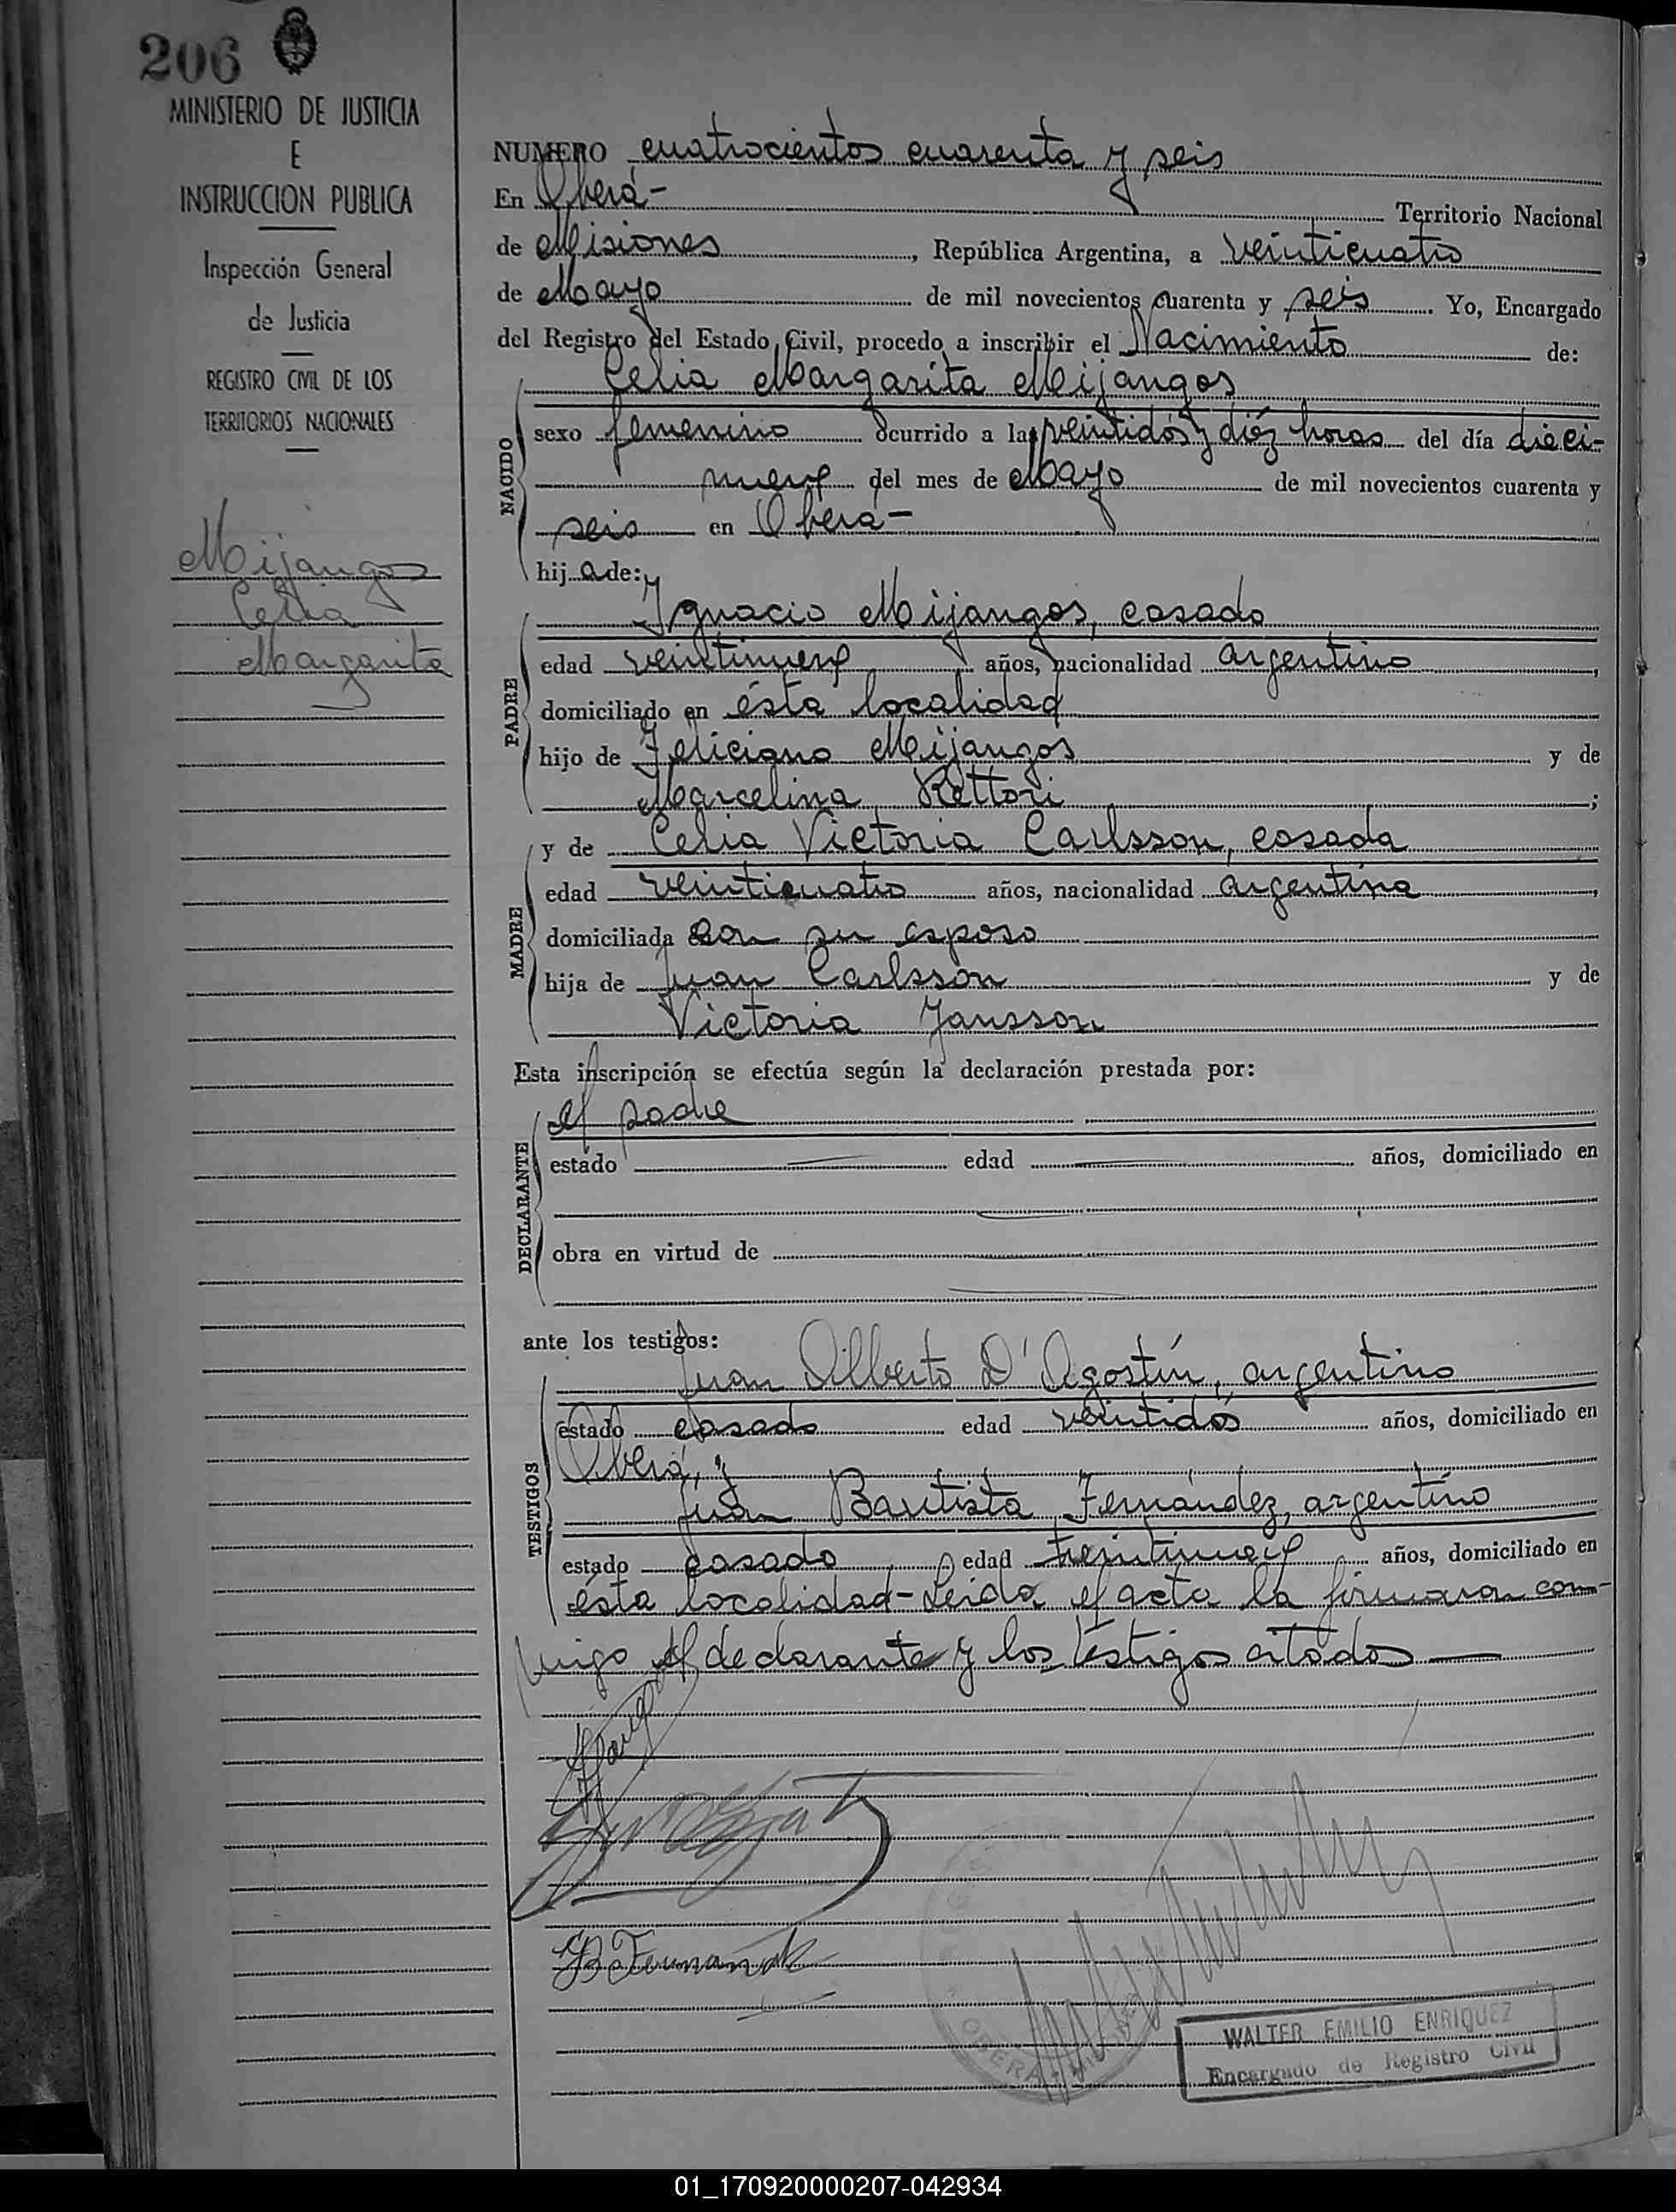 206
MINISTERIO DE JUSTICIA
E
INSTRUCCION PUBLICA
Inspección General
de Justicia
REGISTRO CIVIL DE LOS
TERRITORIOS NACIONALES
Mijangos
Celia
Margarita
NUMERO cuatrocientos cuarenta y seis
En Oberá- Territorio Nacional
de Misiones, República Argentina, a veinticuatro
de Mayo de mil novecientos cuarenta y seis. Yo, Encargado
del Registro del Estado Civil, procedo a inscribir el Nacimiento de:
NACIDO
Celia Margarita Mijangos
sexo femenino ocurrido a las veintidós y diéz horas del día dieci-
nueve del mes de Mayo de mil novecientos cuarenta y
seis en Oberá-
hij a de:
PADRE
Ignacio Mijangos, casado
edad veintinueve años, nacionalidad argentino,
domiciliado en ésta localidad
hijo de Feliciano Mijangos y de
Marcelina Rettori;
MADRE
y de Celia Victoria Carlsson, casada
edad veinticuatro años, nacionalidad argentina,
domiciliada con su esposo
hija de Juan Carlsson y de
Victoria Jansson
Esta inscripción se efectúa según la declaración prestada por:
DECLARANTE
el padre
estado edad años, domiciliado en
obra en virtud de
ante los testigos:
TESTIGOS
Juan Alberto D'Agostín, argentino
estado casado edad veintidós años, domiciliado en
Oberá, y
Juan Bautista Fernández, argentino
estado casado edad treintinueve años, domiciliado en
ésta localidad- Leida el acta la firmaron con-
migo el declarante y los testigos citados
JB Fernandez
OBERA
WALTER EMILIO ENRIQUEZ
Encargado de Registro Civil
01_170920000207-042934